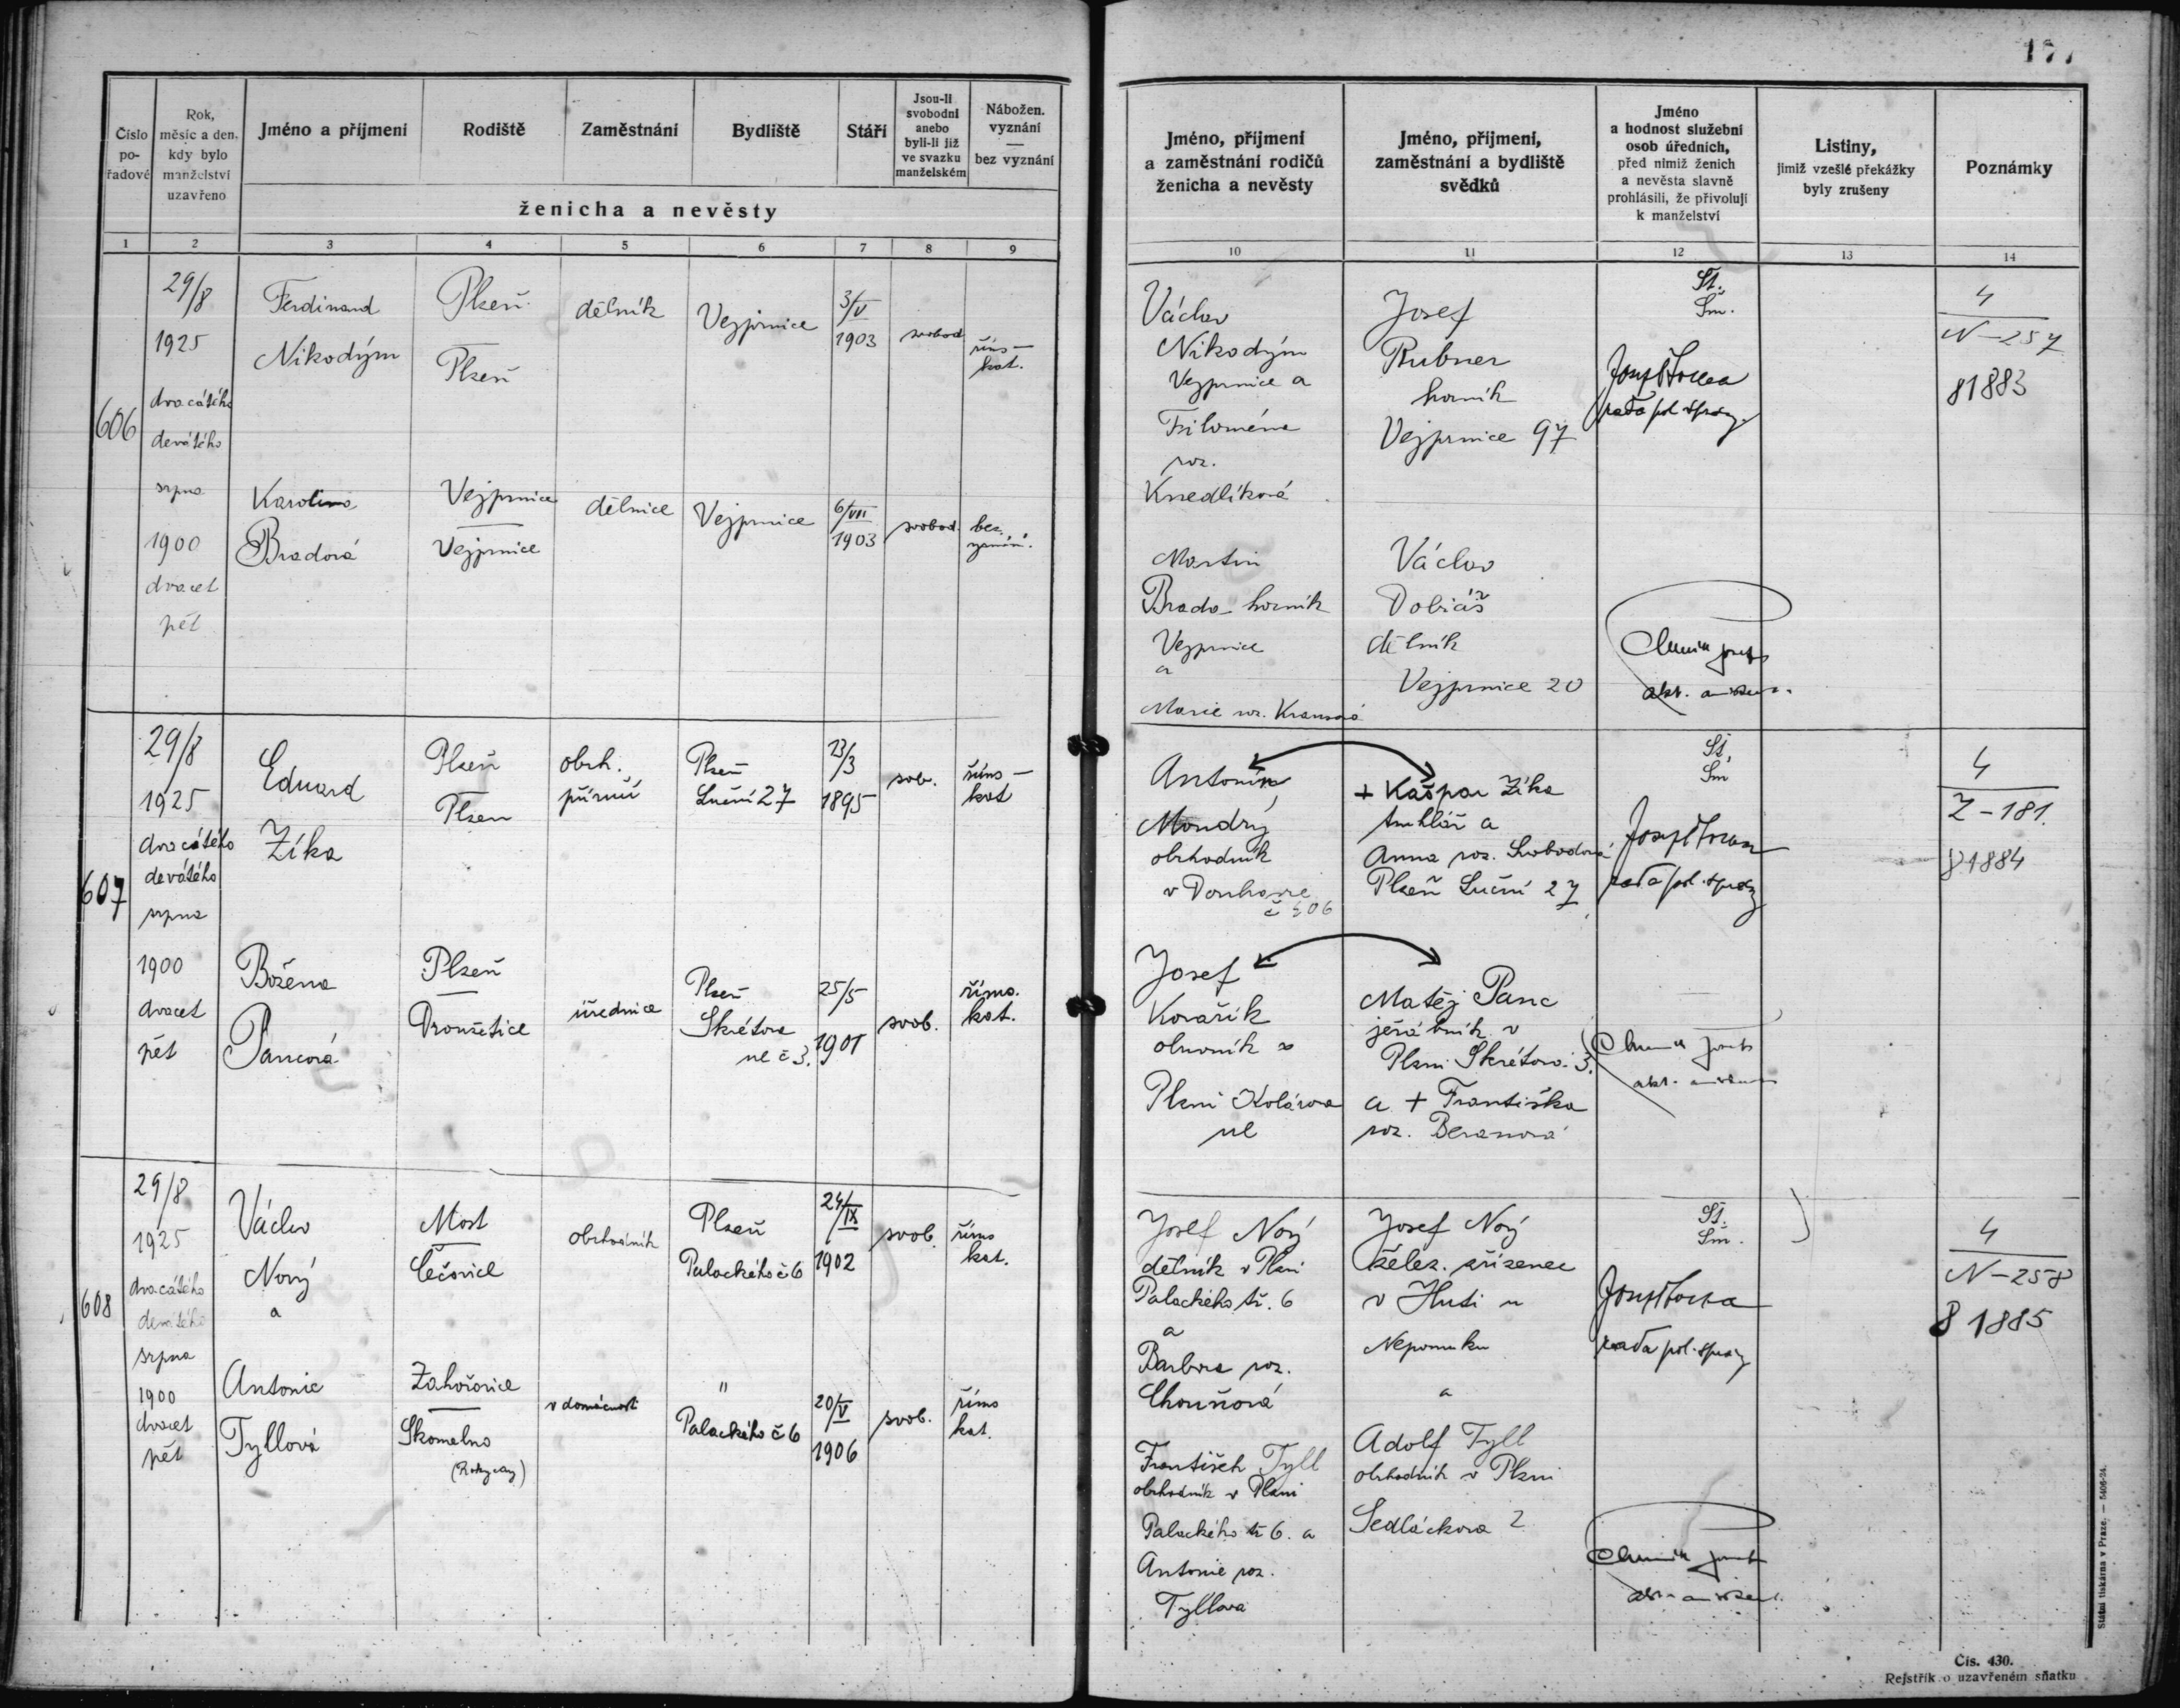 177
Číslo pořadové
Rok, měsíc a den, kdy bylo manželství uzavřeno
Jméno a příjmení
Rodiště
Zaměstnání
Bydliště
Stáří
Jsou-li svobodni anebo byli-li již ve svazku manželském
Nábožen. vyznání — bez vyznání
ženicha a nevěsty
Jméno, příjmení a zaměstnání rodičů ženicha a nevěsty
Jméno, příjmení, zaměstnání a bydliště svědků
Jméno a hodnost služební osob úředních, před nimiž ženich a nevěsta slavně prohlásili, že přivolují k manželství
Listiny, jimiž vzešlé překážky byly zrušeny
Poznámky
1 2 3 4 5 6 7 8 9 10 11 12 13 14
606
29/8
1925
dvacátého
devátého
srpna
1900
dvacet
pět
Ferdinand
Nikodým
Plzeň
Plzeň
dělník
Vejprnice
3/V
1903
svobod
řims-
kat.
Karolina
Bradová
Vejprnice
Vejprnice
dělnice
Vejprnice
6/VII
1903
svobod.
bez
vyznání.
Václav
Nikodým
Vejprnice a
Filoména
roz.
Knedlíková
Martin
Brada horník
Vejprnice
a
Marie roz. Krausová
Josef
Rubner
horník
Vejprnice 97
Václav
Dobiáš
dělník
Vejprnice 20
St.
Sm.
rada pol. správy
4
N-257
81883
607
29/8
1925
dvacátého
devátého
srpna
1900
dvacet
pět
Eduard
Zíka
Plzeň
Plzeň
obch.
příručí
Plzeň
Luční 27
23/3
1895
svob.
řims-
kat
Božena
Pancová
Plzeň
Dronžetice
úřednice
Plzeň
Skrétova
ul č 3.
25/5
1901
svob.
říms.
kat.
Antonín
Moudrý
obchodník
v Doubravce
Josef
Kovařík
obuvník v
Plzni Kolárova
ul
+ Kašpar Zíka
truhlář a
Anna roz. Svobodová
Plzeň Luční 27
Matěj Panc
jeřábník v
Plzni Skrétova 3.
a + Františka
roz. Beranová
St.
Sm
rada pol. správy
4
Z-181.
81884
608
29/8
1925
dvacátého
devátého
srpna
1900
dvacet
pět
Václav
Nový
a
Most
Čečovice
obchodník
Plzeň
Palackého č 6
24/IX
1902
svob.
říms
kat.
Antonie
Tyllová
Zahořovice
Skomelno
(Rokycany)
v domácnosti
"
Palackého č 6
20/V
1906
svob.
říms
kat.
Josef Nový
dělník v Plzni
Palackého tř. 6
a
Barbora roz.
Chouňová
František Tyll
obchodník v Plzni
Palackého tř 6. a
Antonie roz.
Tyllova
Josef Nový
želez. zřízenec
v Huti u
Nepomuku
a
Adolf Tyll
obchodník v Plzni
Sedláčkova 2
St.
Sm.
rada pol. správy
4
N-258
81885
Státní tiskárna v Praze. — 5406-24.
Čís. 430.
Rejstřík o uzavřeném sňatku